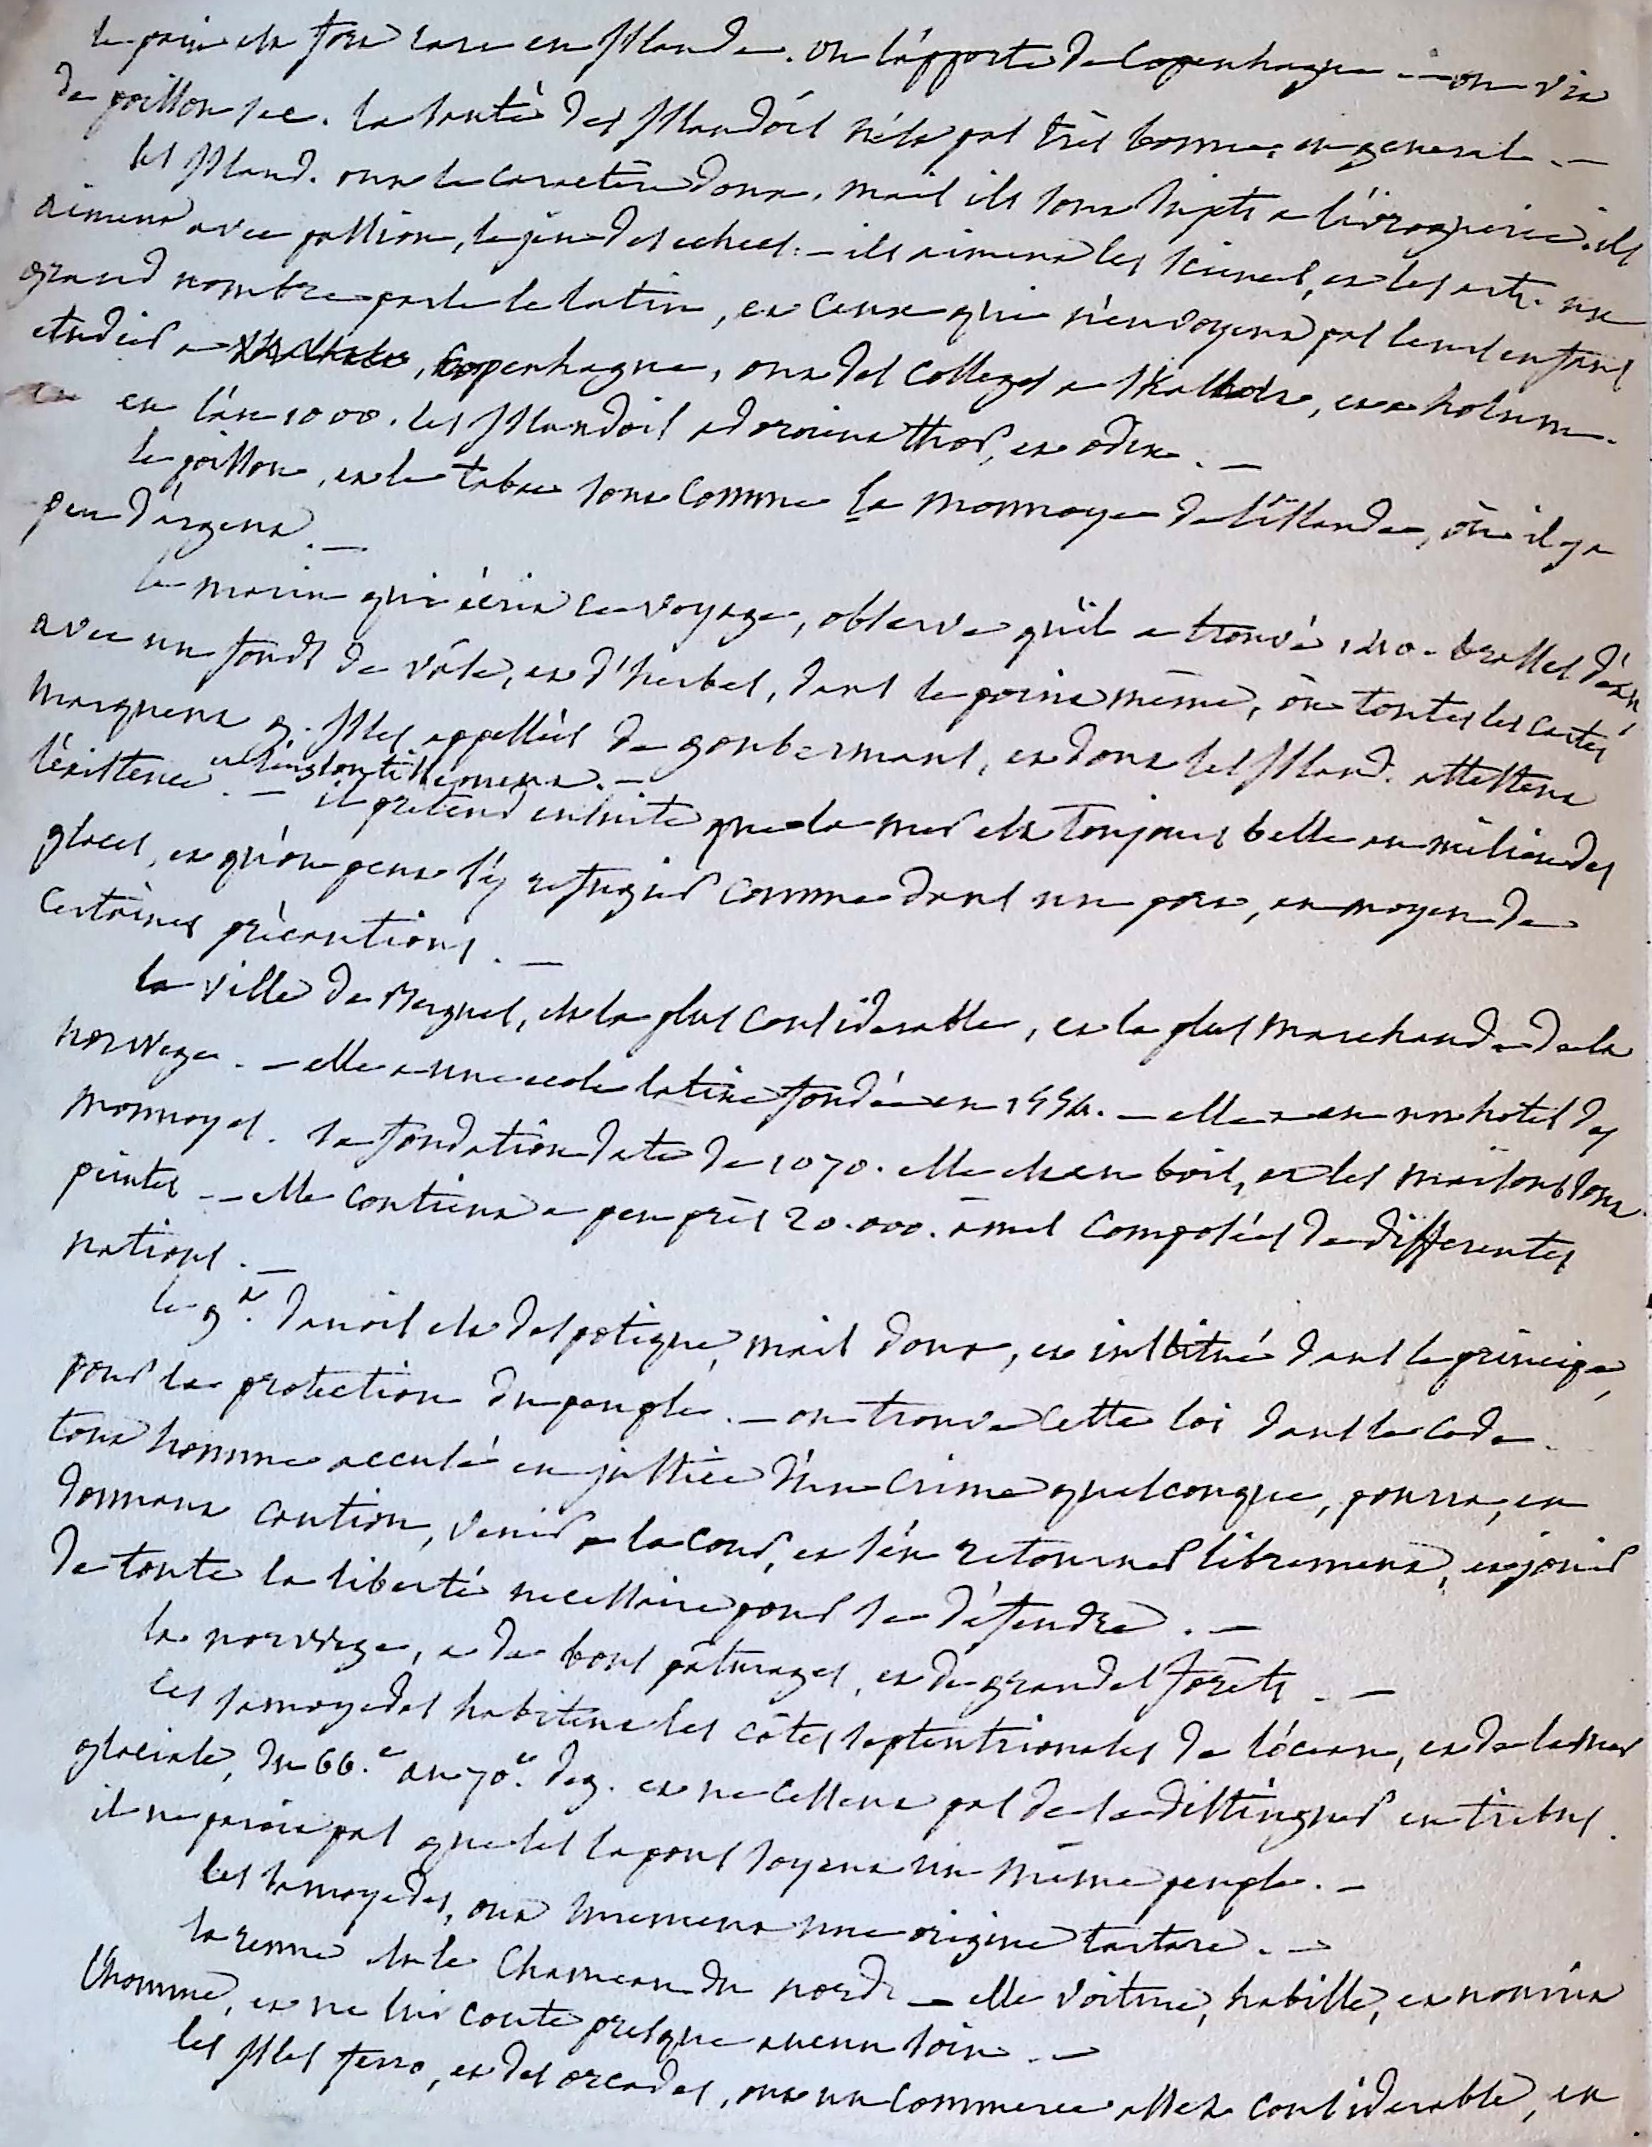 le pain est fort rare en Islande. on l'apporte de Copenhague — on vit
de poisson sec. la santé des Islandois n'est pas très bonne, en general. —
les Island. ont le caractère doux, mais ils sont sujets a l'ivrognerie. ils
aiment avec passion, le jeu des echecs. — ils aiment les sciences, et les arts. un
grand nombre parle le latin, et ceux qui n'envoyent pas leurs enfans
etudier a Copenhague, ont des colleges a Skalholt, et a holum.
en l'an 1000. les Islandois adoroient thor, et odin. —
le poisson, et le tabac sont comme la monnoye de l'islande, où il y a
peu d'argent. —
le marin qui écrit ce voyage, observe qu'il a trouvé brasses d'eau,
avec un fonds de vase, et d'herbes, dans le point même, où toutes les cartes
marquent 9. Isles appellées de goubermans, et dont les Island. attestent
l'existence et l'engloutissement. —
— il pretend ensuite que la mer est toujours belle au milieu des
glaces, et qu'on peut s'y refugier comme dans un port, au moyen de
certaines précautions. —
la ville de Bergues, est la plus considerable, et la plus marchande de la
norwege. — elle a une ecole latine fondée en 1554. — elle a eu un hotel des
monnoyes. sa fondation date de 1070. elle est en bois, et les maisons sont
peintes — elle contient a peu près 20.000. âmes composées de differentes
nations. —
le g.t danois est despotique, mais doux, et institué dans le principe,
pour la protection du peuple. — on trouve cette loi dans le code.
tout homme accusé en justice d'un crime quelconque, pourra, en
donnant caution, venir a la cour, et s'en retourner librement, et jouir
de toute la liberté necessaire pour se défendre. —
la norwege, a de bons pâturages, et de grandes forêts. —
les samoyedes habitent les côtes septentrionales de l'océan, et de la mer
glaciale, du 66.e au 70.e deg. et ne cessent pas de se distinguer en tribus.
il ne paroit pas que les lapons soyent un même peuple. —
les samoyedes, ont surement une origine tartare. —
la renne est le chameau du nord. — elle voiture, habille, et nourrit
l'homme, et ne lui coute presque aucun soin. —
les Isles ferro, et des orcades, ont un commerce assez considerable, en